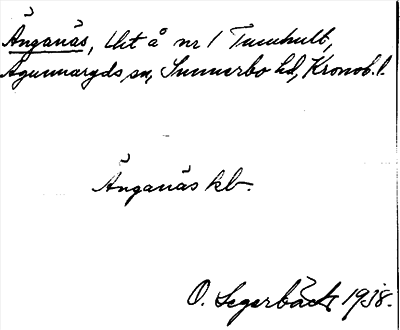 Änganäs, lht å nr 1 Tunhult,
Agunnaryds sn, Sunnerbo hd, Kronob. l.
Änganäs kb.
O. Segerbäck 1938.